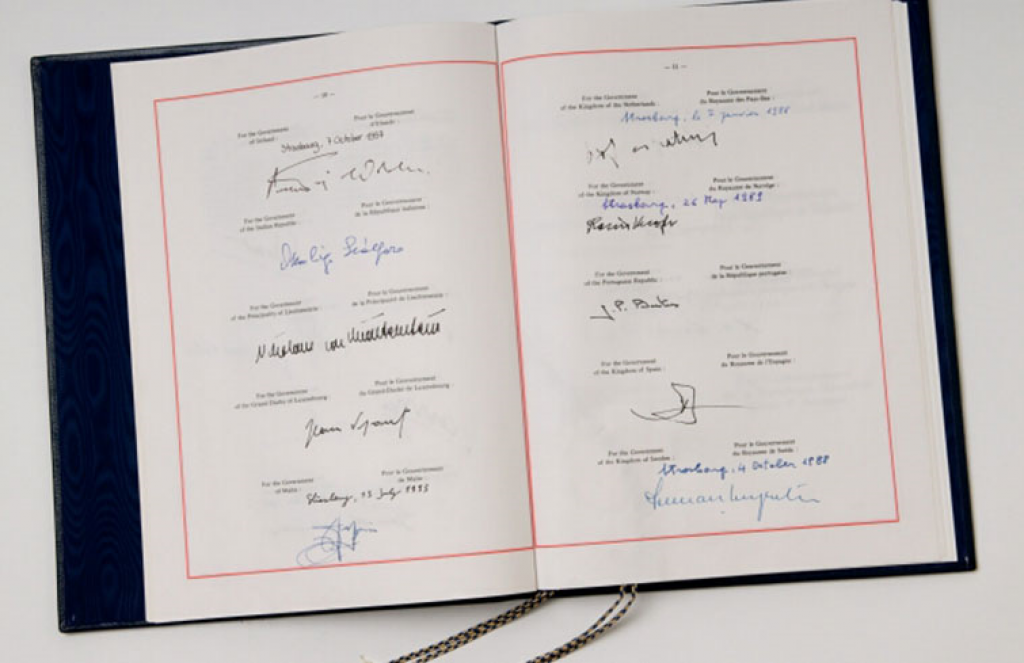 — 10 —
For the Government
of Ireland :
Pour le Gouvernement
d'Irlande :
Strasbourg, 7 October 1997
For the Government
of the Italian Republic :
Pour le Gouvernement
de la République italienne :
For the Government
of the Principality of Liechtenstein :
Pour le Gouvernement
de la Principauté de Liechtenstein :
Nikolaus von Liechtenstein
For the Government
of the Grand Duchy of Luxembourg :
Pour le Gouvernement
du Grand-Duché de Luxembourg :
For the Government
of Malta :
Pour le Gouvernement
de Malte :
Strasbourg, 13 July 1995
— 11 —
For the Government
of the Kingdom of the Netherlands :
Pour le Gouvernement
du Royaume des Pays-Bas :
Strasbourg, le 7 janvier 1988
For the Government
of the Kingdom of Norway :
Pour le Gouvernement
du Royaume de Norvège :
Strasbourg, 26 May 1989
For the Government
of the Portuguese Republic :
Pour le Gouvernement
de la République portugaise :
For the Government
of the Kingdom of Spain :
Pour le Gouvernement
du Royaume de l'Espagne :
For the Government
of the Kingdom of Sweden :
Pour le Gouvernement
du Royaume de Suède :
Strasbourg, 4 October 1988